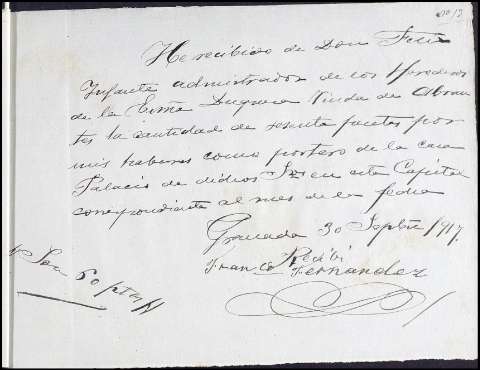 He recibido de Don Felix
Infante admistrador de los Herederos
de la Exmª Duquesa Viuda de Abran
tes la cantidad de sesenta pesetas por
mis haberes como portero de la casa
Palacio de dichos Srs en esta Capital
correspondiente al mes de la fecha
Granada 30 Septbre 1917.
Recibi
Franco Fernandez
Son 60 ptas